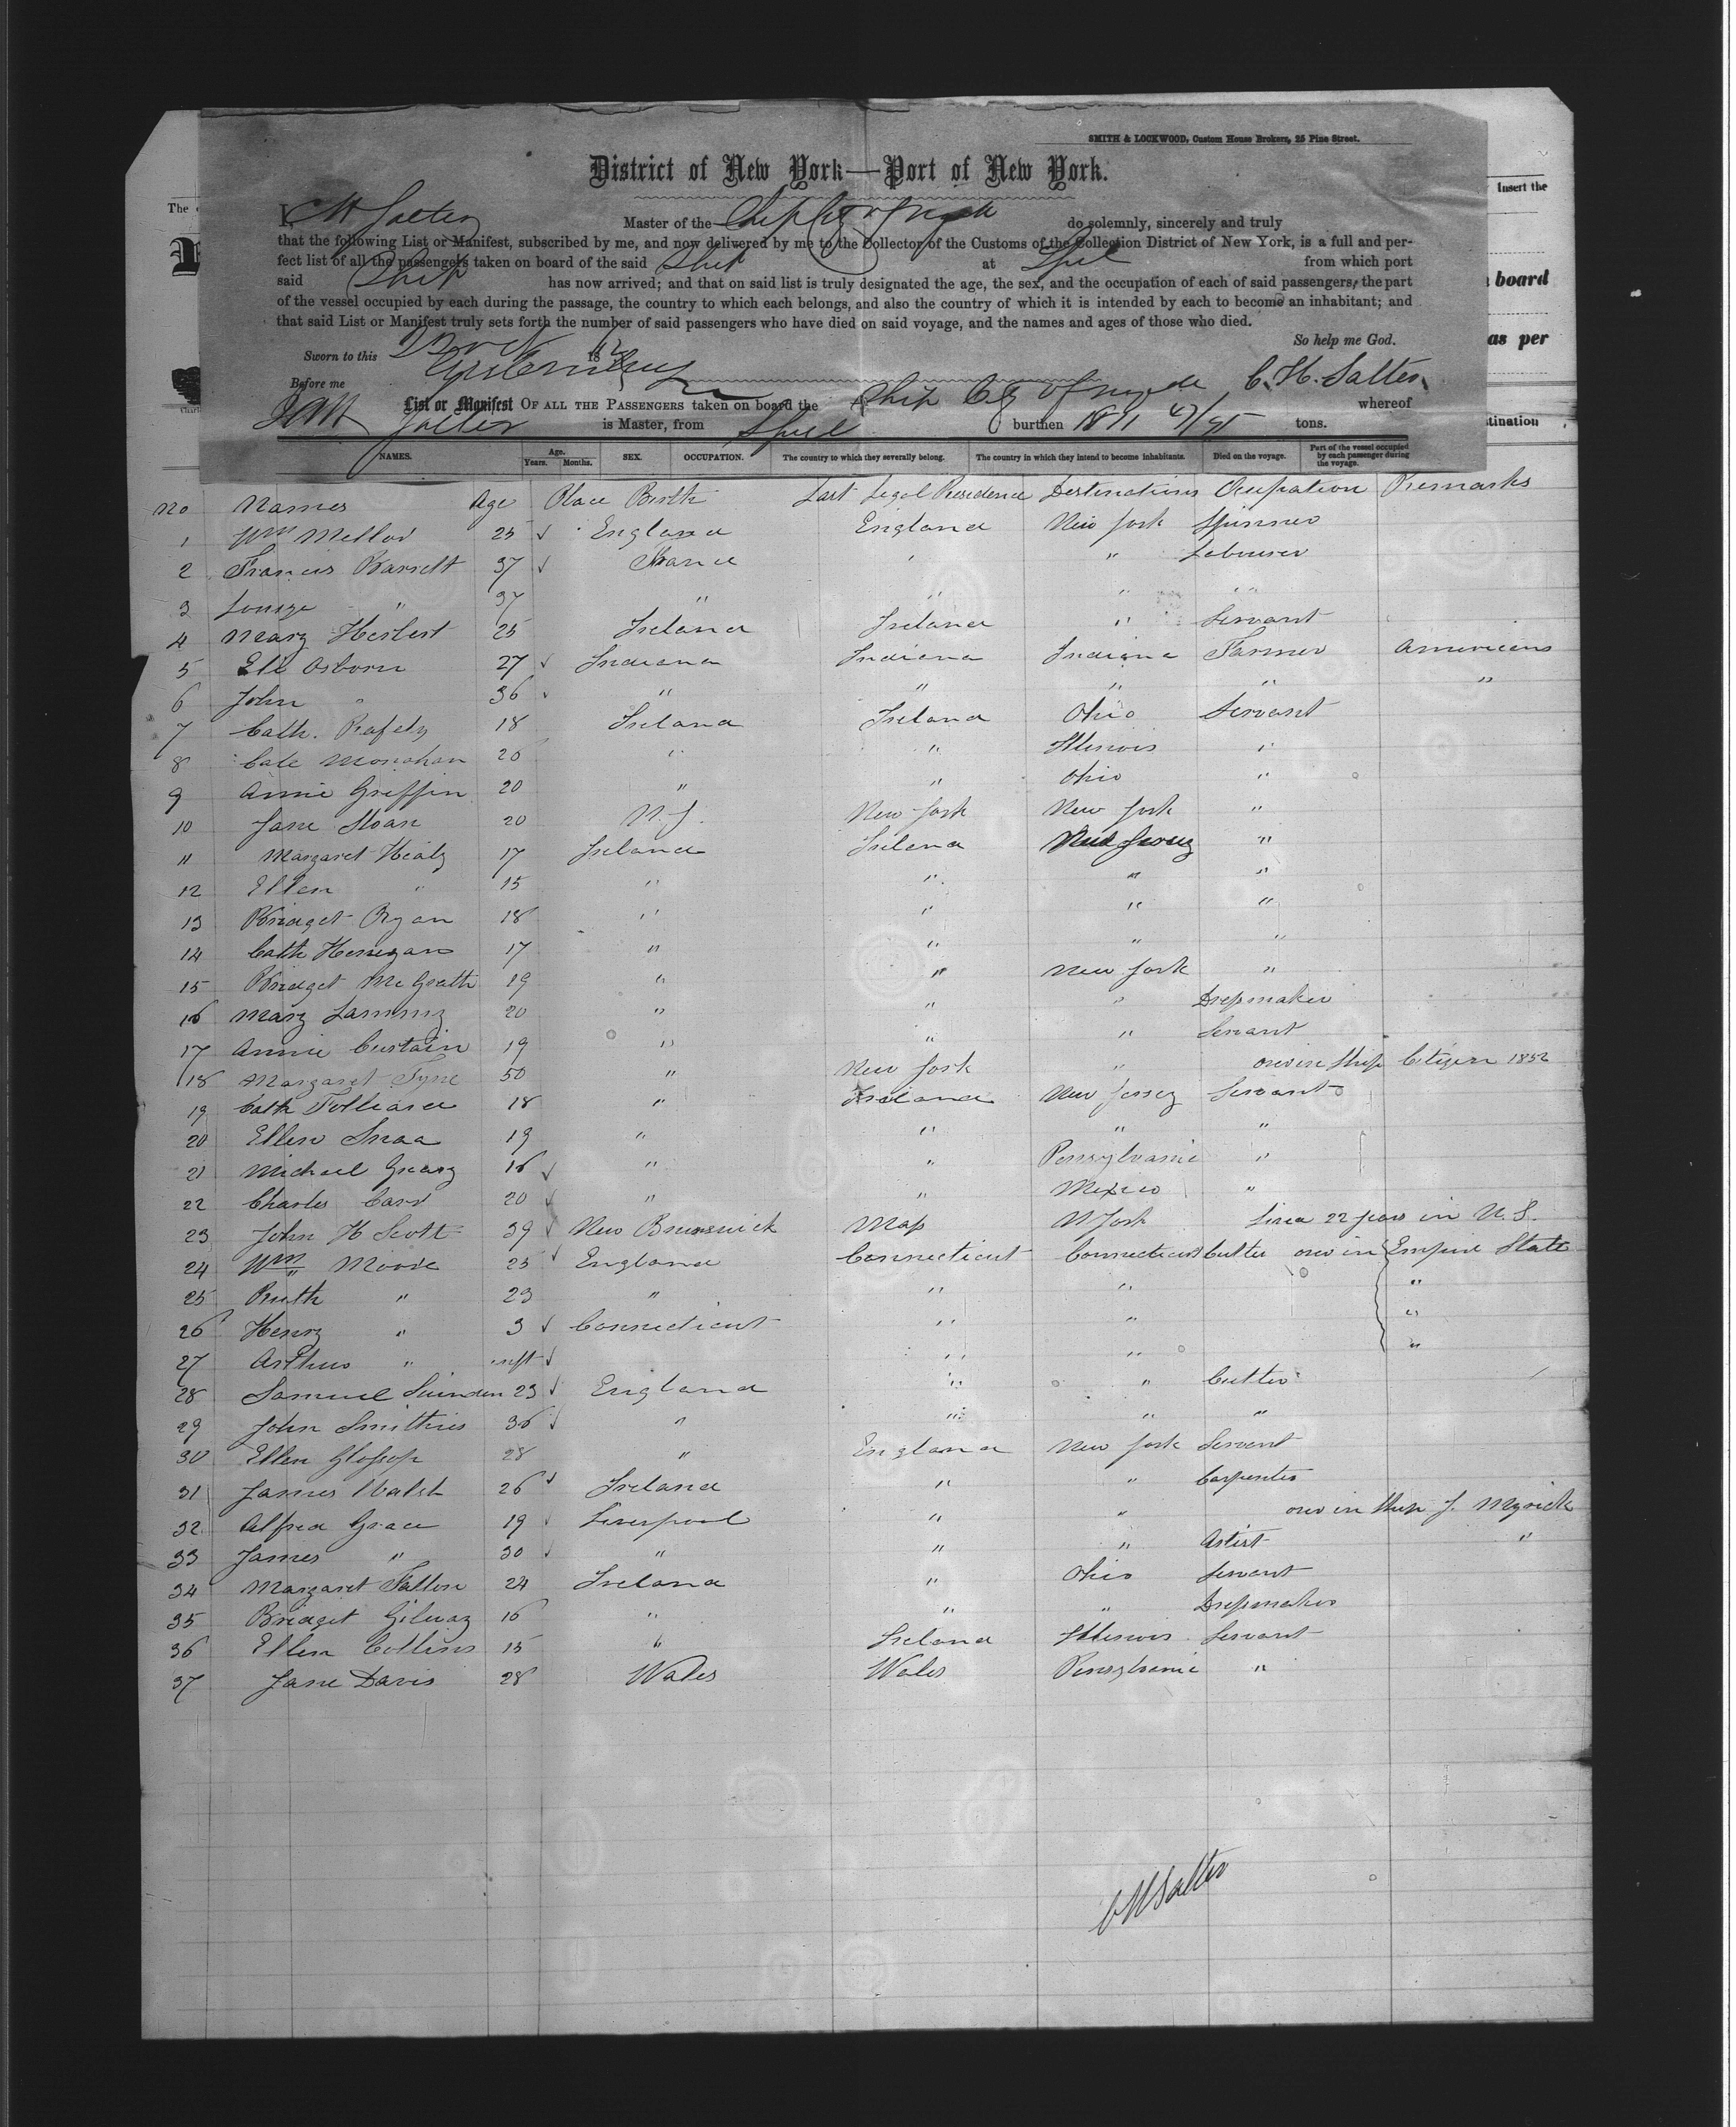 SMITH & LOCKWOOD, Custom House Brokers, 25 Pine Street.
District of New York—Port of New York.
Insert the
The
I, C H Salter Master of the Ship City of do solemnly, sincerely and truly
that the following List or Manifest, subscribed by me, and now delivered by me to the Collector of the Customs of the Collection District of New York, is a full and per-
fect list of all the passengers taken on board of the said Ship at Lpool from which port
said Ship has now arrived; and that on said list is truly designated the age, the sex, and the occupation of each of said passengers, the part
board
of the vessel occupied by each during the passage, the country to which each belongs, and also the country of which it is intended by each to become an inhabitant; and
that said List or Manifest truly sets forth the number of said passengers who have died on said voyage, and the names and ages of those who died.
So help me God.
as per
Sworn to this 18
Before me C. H. Salter
List or Manifest OF ALL THE PASSENGERS taken on board the Ship City of whereof
C H Salter is Master, from Lpool burthen tons.
tination
NAMES. Age. Years. Months. SEX. OCCUPATION. The country to which they severally belong. The country in which they intend to become inhabitants. Died on the voyage. Part of the vessel occupied by each passenger during the voyage.
No Names Age Place Birth Last Legal Residence Destinations Ocupation Remarks
1 Wm Mellor 25 England England New York Spinner
2 Francis Barrett 37 " Labourer
3 " 37 " " " "
4 Mary Herbert 25 Ireland Ireland " Servant
5 Eli Osborn 27 Indiana Indiana Indiana Farmer Americans
6 John " 36 " " " " "
7 Cath. Rafety 18 Ireland Ireland Ohio Servant
8 Cate Monahan 20 " " Illinois "
9 Annie Griffin 20 " " Ohio "
10 Jane Sloan 20 N. Y. New York New York "
11 Margaret Healy 17 Ireland Ireland New Jersey "
12 Ellen " 15 " " " "
13 Bridget Ryan 18 " " " "
14 Cath 17 " " " "
15 Bridget McGrath 19 " " New York "
16 Mary 20 " " " Dressmaker
17 Annie Curtain 19 " " " Servant
18 Margaret Tyne 50 " New York " over in Ship Citizen 1852
19 Cath 18 " Ireland New Jersey Servant
20 Ellen 19 " " " "
21 Michael Geary 16 " " Pensylvanie "
22 Charles 20 " " Mexico "
23 John H Scott 39 New Brunswick N York 22 years in U. S.
24 Wm Moore 25 England Connecticut Connecticut Cutler over in Empire State
25 Ruth " 23 " " " "
26 Henry " 3 Connecticut " " "
27 Arthur " inft " " "
28 Samuel 23 England " " Cutler
29 John Smithies 36 " " " "
30 Ellen Glossop 28 " England New York Servant
31 James Walsh 26 Ireland " " Carpenter
32 Alfred Grace 19 Liverpool " " over in Ship J. Myrick
33 James " 30 " " " Artist "
34 Margaret Fallon 24 Ireland " Ohio Servant
35 Bridget Gilway 16 " " " Dressmaker
36 Ellen Collins 15 " Ireland Illinois Servant
37 Jane Davis 28 Wales Wales Pensylvanie "
C H Salter